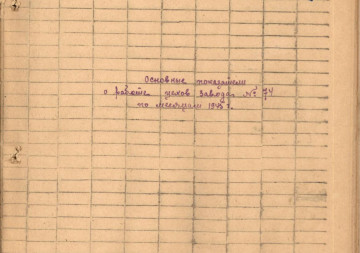 Основные показатели
о работе цехов завода № 74
по месяцам 1943 г.